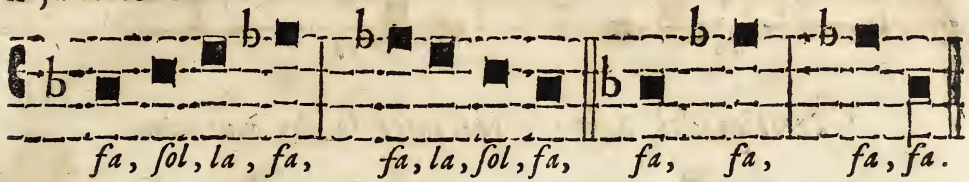 fa, ſol, la, fa, fa, la, ſol, fa, fa, fa, fa, fa.